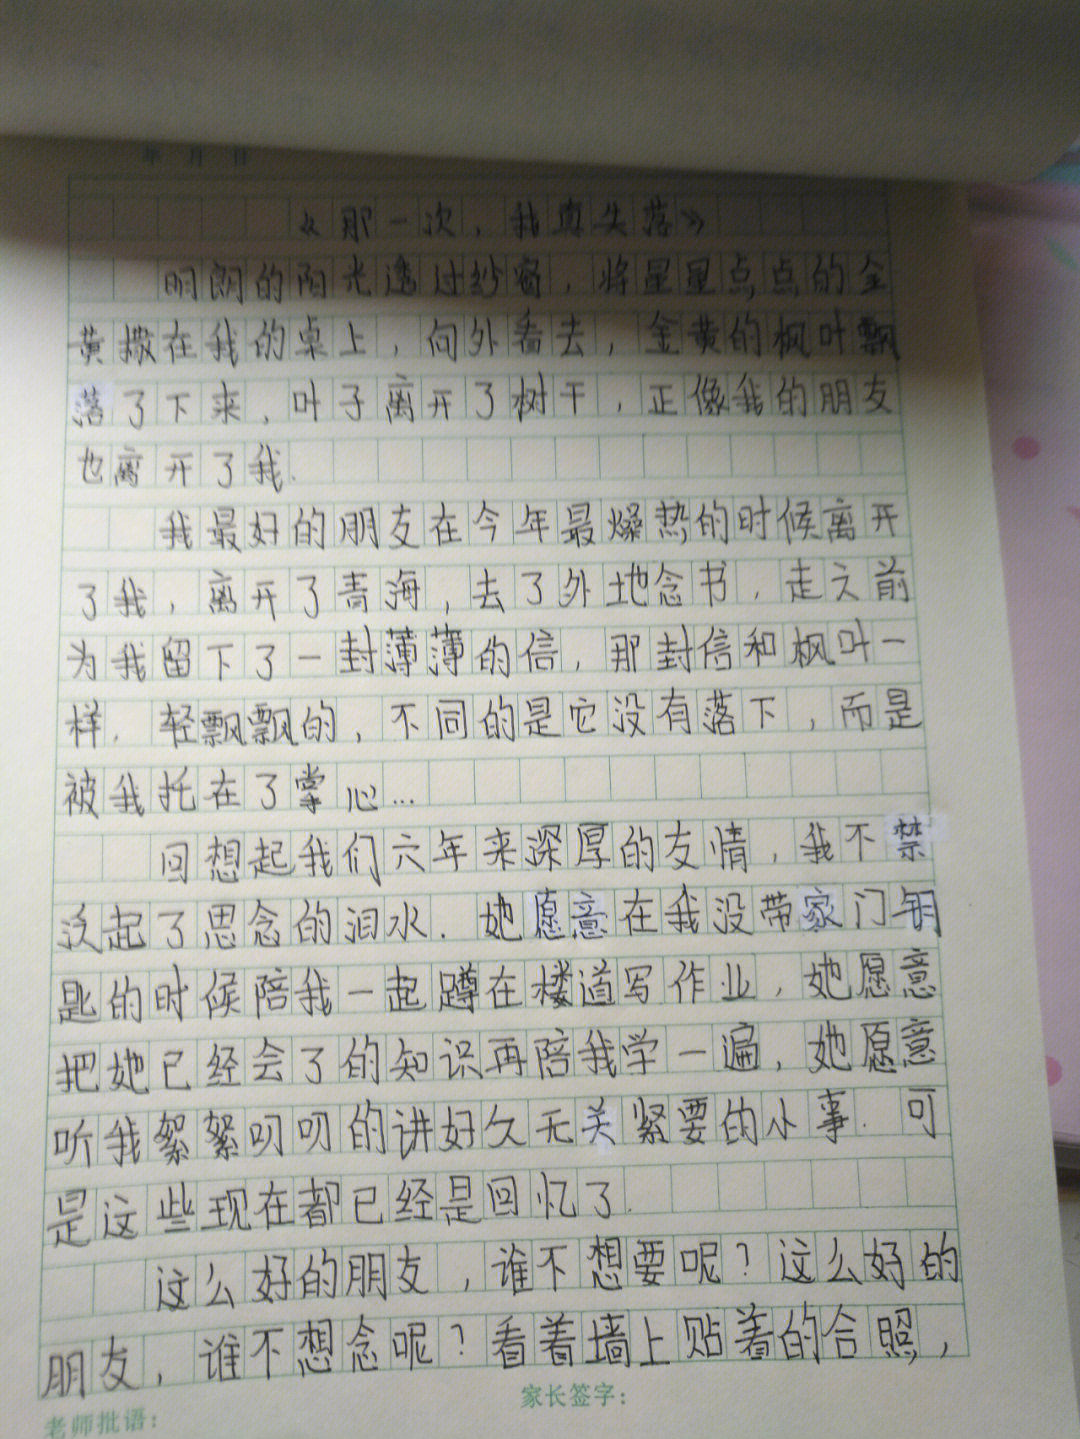 年 月 日
《那一次，我真失落》
明朗的阳光透过纱窗，将星星点点的金
黄撒在我的桌上，向外看去，金黄的枫叶飘
落了下来，叶子离开了树干，正像我的朋友
也离开了我.
我最好的朋友在今年最燥热的时候离开
了我，离开了青海，去了外地念书，走之前
为我留下了一封薄薄的信，那封信和枫叶一
样，轻飘飘的，不同的是它没有落下，而是
被我托在了掌心...
回想起我们六年来深厚的友情，我不禁
泛起了思念的泪水.她愿意在我没带家门钥
匙的时候陪我一起蹲在楼道写作业，她愿意
把她已经会了的知识再陪我学一遍，她愿意
听我絮絮叨叨的讲好久无关紧要的小事.可
是这些现在都已经是回忆了.
这么好的朋友，谁不想要呢？这么好的
朋友，谁不想念呢？看着墙上贴着的合照，
家长签字：
老师批语：